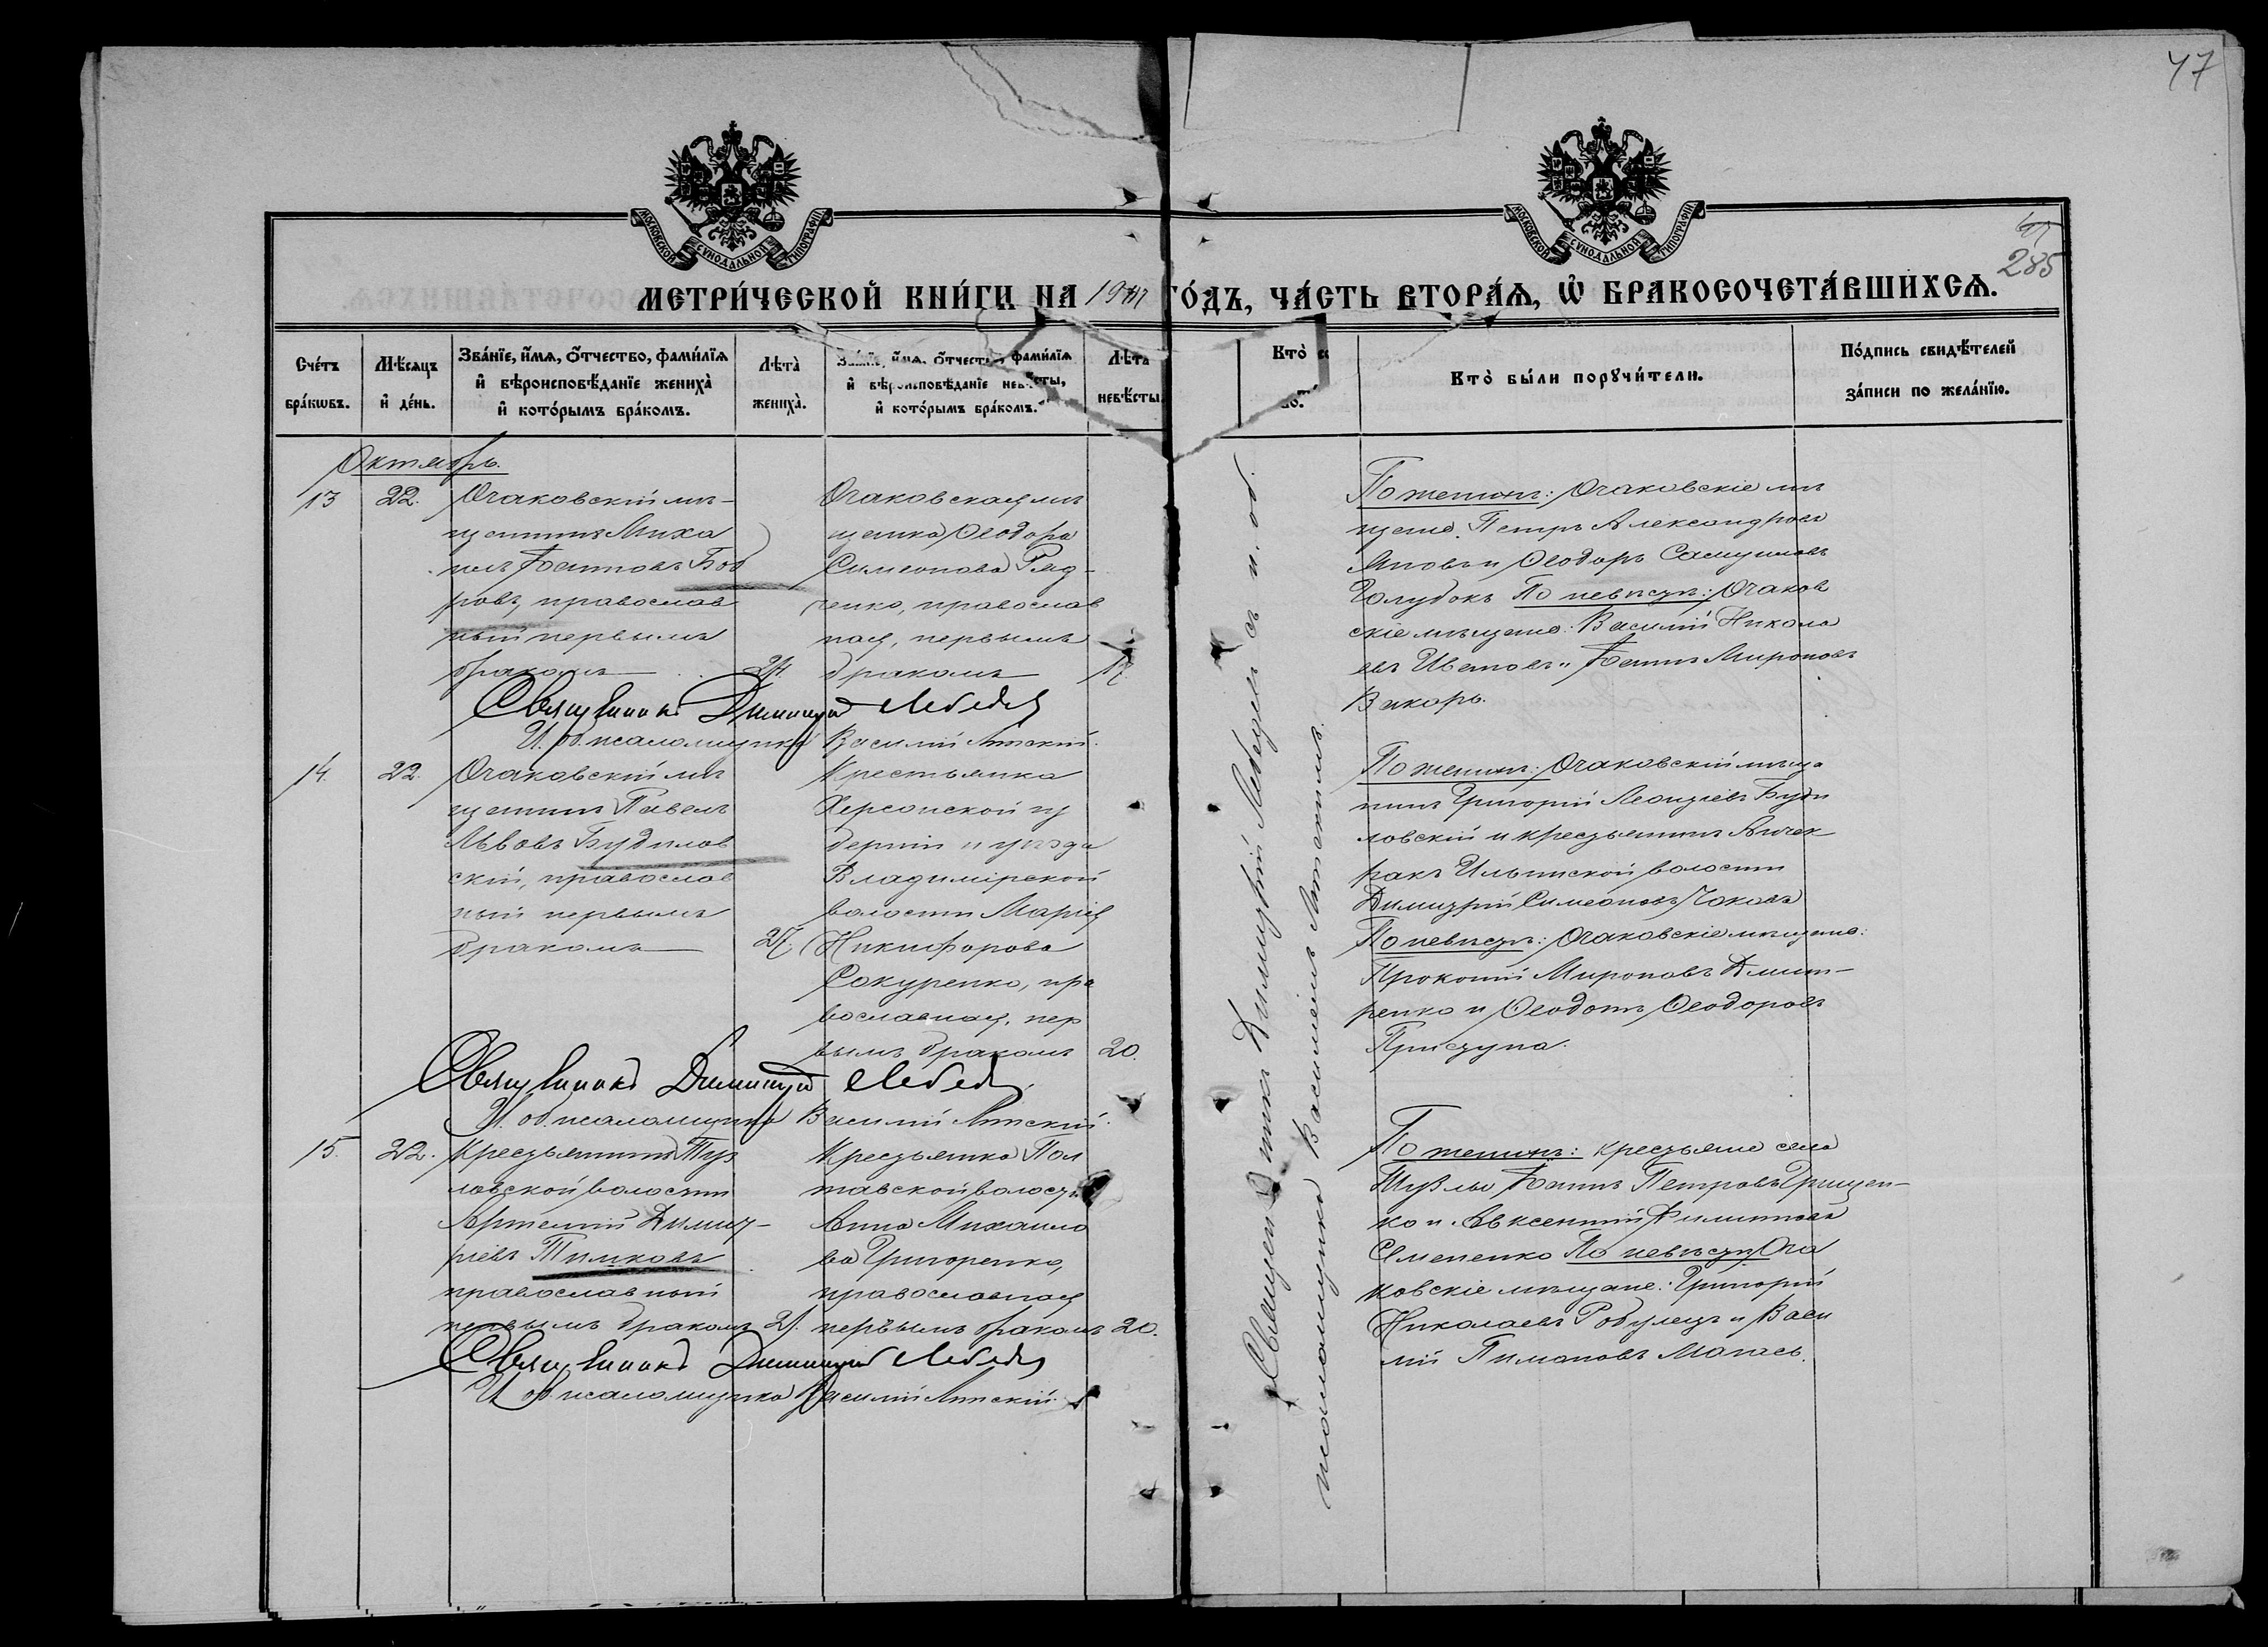 47
МОСКОВСКОЙ СѴНОДАЛЬНОЙ ТИПОГРАФІИ
МОСКОВСКОЙ СѴНОДАЛЬНОЙ ТИПОГРАФІИ
285
МЕТРИ́ЧЕСКОЙ КНИ́ГИ НА 19 ГО́ДЪ, ЧА́СТЬ ВТОРА́Ѧ, Ѡ҆ БРАКОСОЧЕТА́ВШИХСѦ.
Сче́тъ бра́кѡвъ.
Мѣ́сяцъ и҆ де́нь.
Зва́нїе, и҆́мѧ, ѻ҆́тчество, фами́лїѧ
и҆ вѣроисповѣ́данїе жениха̀
и҆ кото́рымъ бра́комъ.
Лѣта̀ жениха̀.
Зва́нїе, и҆́мѧ, ѻ҆́тчество, фами́лїѧ
и҆ вѣроисповѣ́данїе невѣ́сты,
и҆ кото́рымъ бра́комъ.
Лѣта̀ невѣ́сты.
Кто̀
Кто̀ бы́ли порꙋчи́тели.
По́дпись свидѣ́телей
за́писи по жела́нїю.
Октябрь.
13
22.
Очаковскій мѣ-
щанинъ Миха
илъ Іоанновъ Боб
ровъ, православ
ный первымъ
бракомъ
24.
Очаковская мѣ
щанка Ѳеодора
Симеонова Ряд-
ченко, православ
ная, первымъ
бракомъ
17.
По женихѣ: Очаковскіе мѣ
щане: Петръ Александровъ
и Ѳеодоръ Самуиловъ
Голубокъ По невѣстѣ: Очаков
скіе мѣщане: Василій Никола
евъ Ивановъ и Іоаннъ Мироновъ
Викарь.
Священникъ Димитрій Лебедевъ
И. об. псаломщика Василій Лятскій.
14.
22.
Очаковскій мѣ
щанинъ Павелъ
Львовъ Будилов
скій, православ
ный первымъ
бракомъ
27.
Крестьянка
Херсонской гу
берніи и уѣзда
Владимірской
волости Марія
Никифорова
Сокуренко, пра
вославная, пер
вымъ бракомъ
20.
По женихѣ: Очаковскій мѣща
нинъ Григорій Леонтіевъ Буди
ловскій и крестьянинъ Анчек
ракъ Ильинской волости
Димитрій Симеоновъ Чокавъ
По невѣстѣ: Очаковскіе мѣщане:
Прокопій Мироновъ Дмит-
ренко и Ѳеодотъ Ѳеодоровъ
Присѣупа.
Священникъ Димитрій Лебедевъ.
И. об. псаломщика Василій Лятскій.
15.
22.
Крестьянинъ Туз
ловской волости
Артемій Димит-
ріевъ Тимковъ
православный
первымъ бракомъ
21.
Крестьянка Пол
тавской волости
Анна Михайло
ва Григоренко,
православная
первымъ бракомъ
20.
По женихѣ: крестьяне села
Тузлы Іоаннъ Петровъ Грищен-
ко и Авксентій Филипповъ
Семененко По невѣстѣ: Оча
ковскіе мѣщане: Григорій
Николаевъ Робулецъ и Васи
лій Пимоновъ Магась.
Священникъ Димитрій Лебедевъ
И. об. псаломщика Василій Лятскій.
Священникъ Димитрій Лебедевъ съ и. об.
псаломщика Василіемъ Лятскимъ.